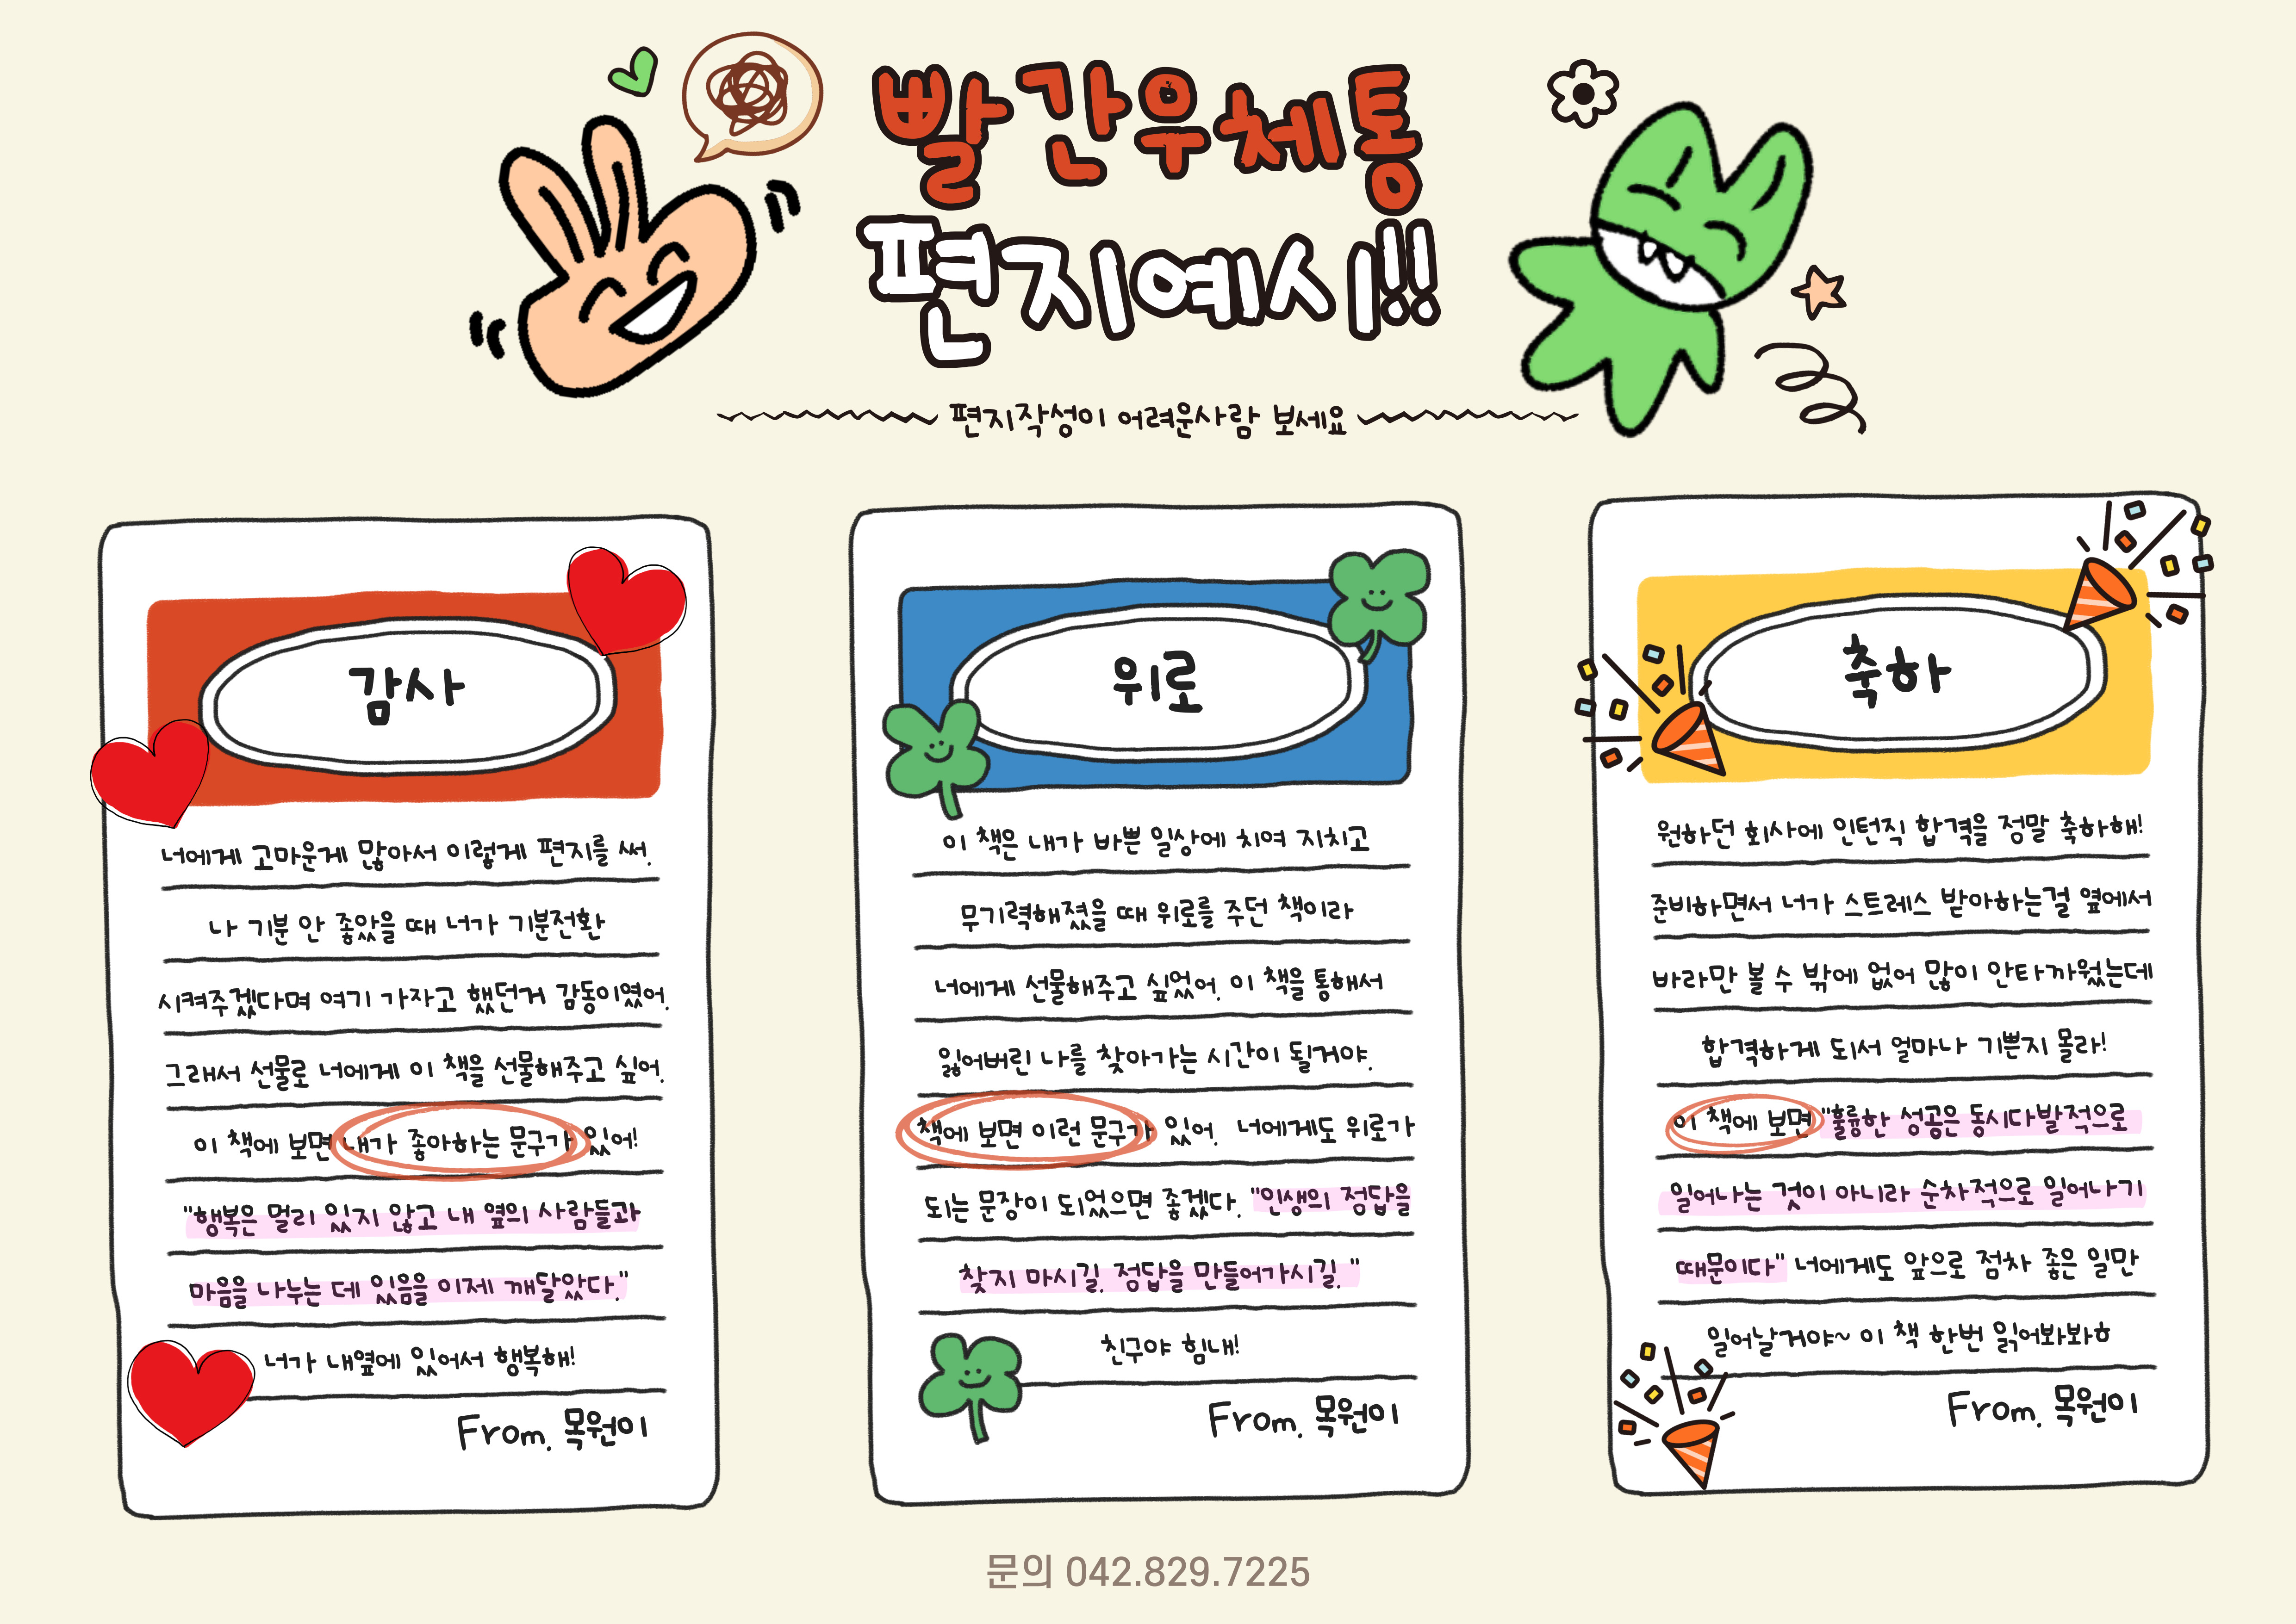 빨간우체통
편지예시!!
편지작성이 어려운사람 보세요
감사
너에게 고마운게 많아서 이렇게 편지를 써.
나 기분 안 좋았을 때 너가 기분전환
시켜주겠다며 여기 가자고 했던거 감동이였어.
그래서 선물로 너에게 이 책을 선물해주고 싶어.
이 책에 보면 내가 좋아하는 문구가 있어!
"행복은 멀리 있지 않고 내 옆의 사람들과
마음을 나누는 데 있음을 이제 깨달았다."
너가 내옆에 있어서 행복해!
From. 목원이
위로
이 책은 내가 바쁜 일상에 치여 지치고
무기력해졌을 때 위로를 주던 책이라
너에게 선물해주고 싶었어. 이 책을 통해서
잃어버린 나를 찾아가는 시간이 될거야.
책에 보면 이런 문구가 있어. 너에게도 위로가
되는 문장이 되었으면 좋겠다. "인생의 정답을
찾지 마시길. 정답을 만들어가시길."
친구야 힘내!
From. 목원이
축하
원하던 회사에 인턴직 합격을 정말 축하해!
준비하면서 너가 스트레스 받아하는걸 옆에서
바라만 볼 수 밖에 없어 많이 안타까웠는데
합격하게 되서 얼마나 기쁜지 몰라!
이 책에 보면 "훌륭한 성공은 동시다발적으로
일어나는 것이 아니라 순차적으로 일어나기
때문이다" 너에게도 앞으로 점차 좋은 일만
일어날거야~ 이 책 한번 읽어봐봐ㅎ
From. 목원이
문의 042.829.7225